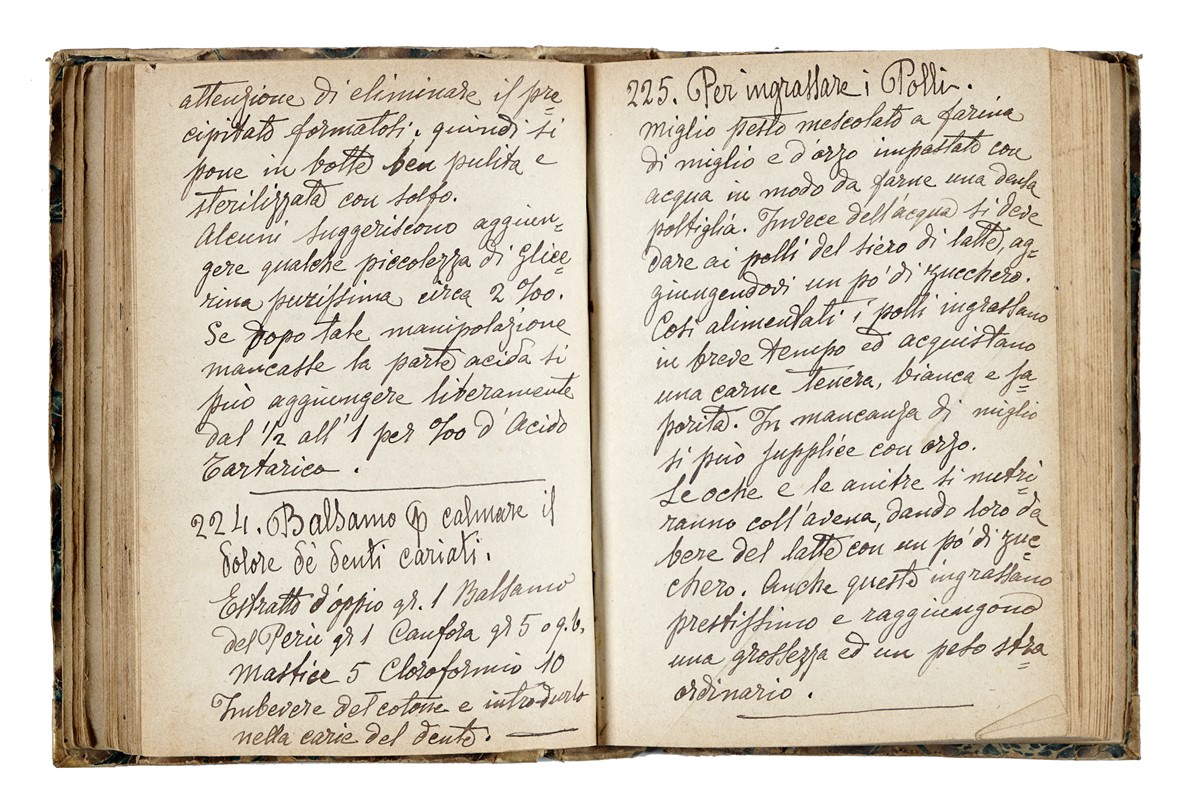 attenzione di eliminare il pre=
cipitato formatosi. quindi si
pone in botte ben pulita e
sterilizzata con solfo.
Alcuni suggeriscono aggiun=
gere qualche piccolezza di Glice=
rina purissima circa 2 %00.
Se dopo tale manipolazione
mancasse la parte acida si
può aggiungere liberamente
dal ½ all' 1 per %00 d'Acido
Tartarico.
224. Balsamo p calmare il
dolore dè denti cariati.
Estratto d'oppio gr. 1 Balsamo
del Perù gr 1 Canfora gr 5 o g.b.
Mastice 5 Cloroformio 10
Imbevere del cotone e introdurlo
nella carie del dente.
225. Per ingrassare i Polli.
Miglio pesto mescolato a farina
di miglio e d'orzo impastato con
acqua in modo da farne una densa
poltiglia. Invece dell'acqua si deve
dare ai polli del siero di latte, ag=
giungendovi un pò di zucchero.
Così alimentati i polli ingrassano
in breve tempo ed acquistano
una carne tenera, bianca e sa=
porita. In mancanza di miglio
si può supplire con orzo.
Le oche e le anitre si nutri=
ranno coll'avena, dando loro da
bere del latte con un pò di zuc=
chero. Anche queste ingrassano
prestissimo e raggiungono
una grossezza ed un peso stra=
ordinario.